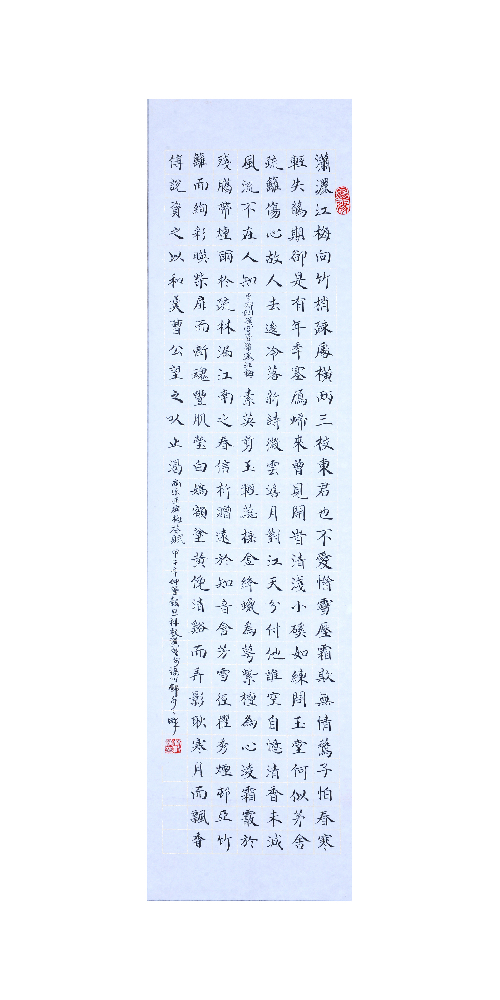 瀟灑江梅向竹梢疎處橫兩三枝東君也不愛惜雪壓霜欺無情燕子怕春寒
輕失蘤期卻是有年年塞鴈歸來曾見開旹清淺小磎如練問玉堂何似茅舍
疏籬傷心故人去後冷落新詩微雲淡月對江天分付他誰空自憶清香未減
風流不在人知 素英剪玉輕蕊捶金絳蠟為萼紫檀為心凌霜霰於
殘臈帶煙雨於疏林漏江南之春信折贈遠於知音含芳雪徑擢秀煙邨亞竹
籬而絢彩暎柴扉而斷魂豐肌瑩白嬌額塗黃俛清谿而弄影耿寒月而飄香
傅說資之以和羹曹公望之以止渴 梅花賦 甲子年仲夏